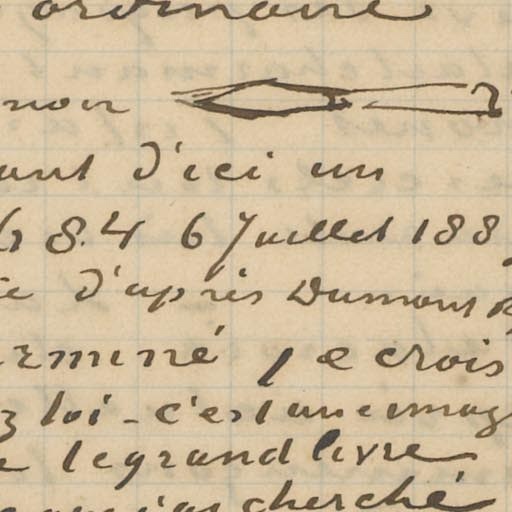 ordinaire
noir
ant d'ici un
8.4 6 Juillet 188
e d'après Dumont
erminé je crois
z toi - c'est une imag
e le grand livre
cherché